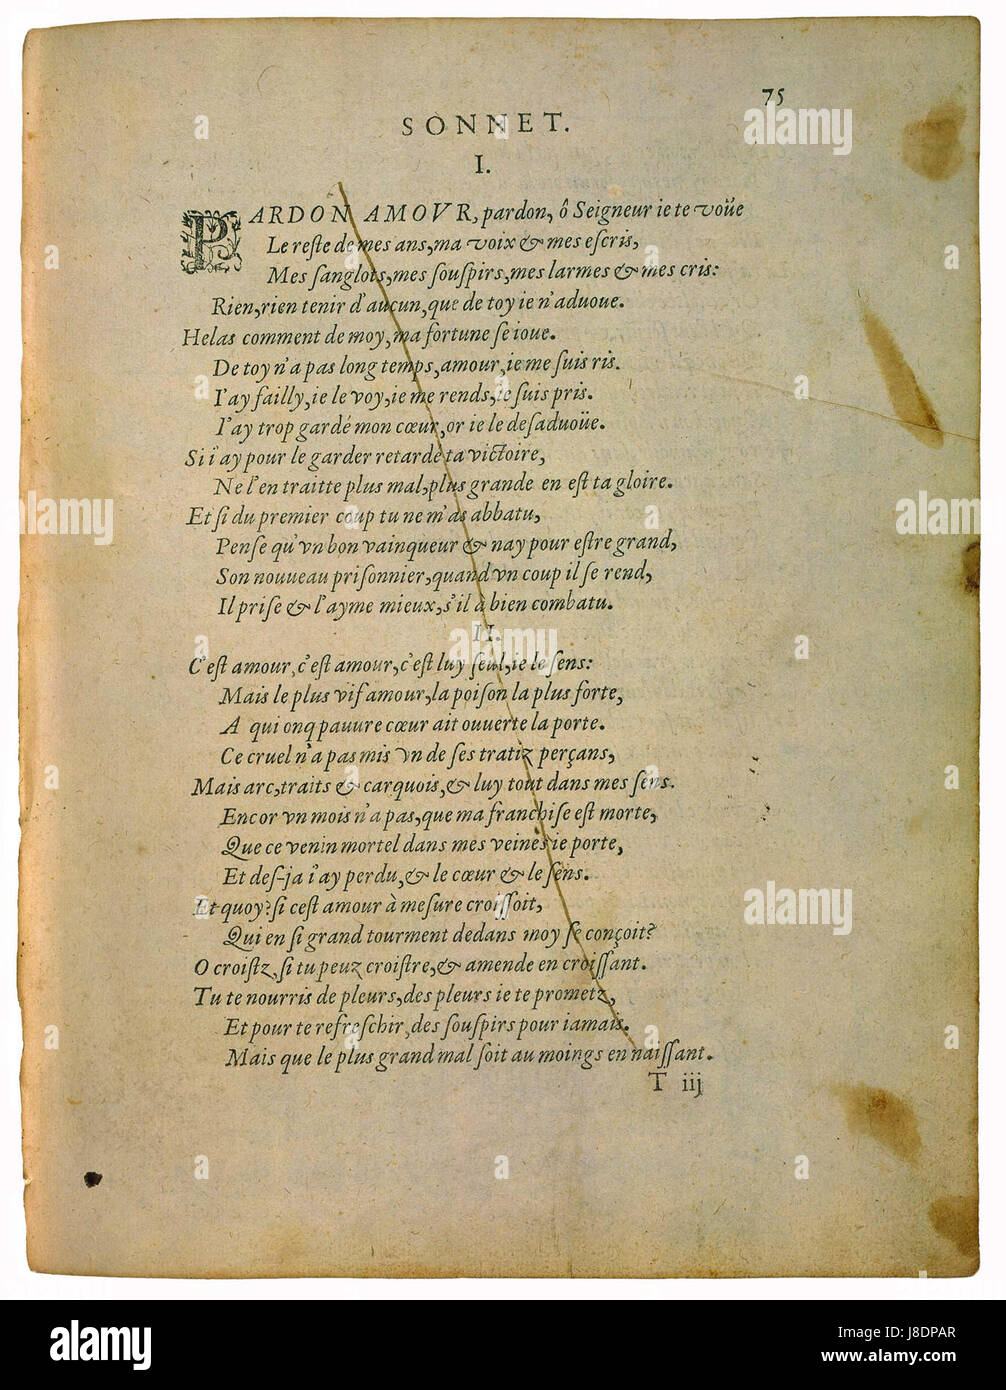 75
SONNET.
I.
PARDON AMOVR, pardon, ô Seigneur ie te voüe
Le reſte de mes ans, ma voix & mes eſcris,
Mes ſanglots, mes ſouſpirs, mes larmes & mes cris:
Rien, rien tenir d'aucun, que de toy ie n'aduoue.
Helas comment de moy, ma fortune ſe ioue.
De toy n'a pas long temps, amour, ie me ſuis ris.
I'ay failly, ie le voy, ie me rends, ie ſuis pris.
I'ay trop gardé mon cœur, or ie le deſaduoüe.
Si i'ay pour le garder retardé ta victoire,
Ne l'en traitte plus mal, plus grande en eſt ta gloire.
Et ſi du premier coup tu ne m'as abbatu,
Penſe qu'vn bon vainqueur & nay pour eſtre grand,
Son nouueau priſonnier, quand vn coup il ſe rend,
Il priſe & l'ayme mieux, s'il à bien combatu.
II.
C'eſt amour, c'eſt amour, c'eſt luy ſeul, ie le ſens:
Mais le plus vif amour, la poiſon la plus forte,
A qui onq pauure cœur ait ouuerte la porte.
Ce cruel n'a pas mis vn de ſes traitz perçans,
Mais arc, traits & carquois, & luy tout dans mes ſens.
Encor vn mois n'a pas, que ma franchiſe eſt morte,
Que ce venin mortel dans mes veines ie porte,
Et deſ-ja i'ay perdu, & le cœur & le ſens.
Et quoy? ſi ceſt amour à meſure croiſſoit,
Qui en ſi grand tourment dedans moy ſe conçoit?
O croiſtz, ſi tu peuz croiſtre, & amende en croiſſant.
Tu te nourris de pleurs, des pleurs ie te prometz,
Et pour te refreſchir, des ſouſpirs pour iamais.
Mais que le plus grand mal ſoit au moings en naiſſant.
T iij
alamy
Image ID: J8DPAR
www.alamy.com